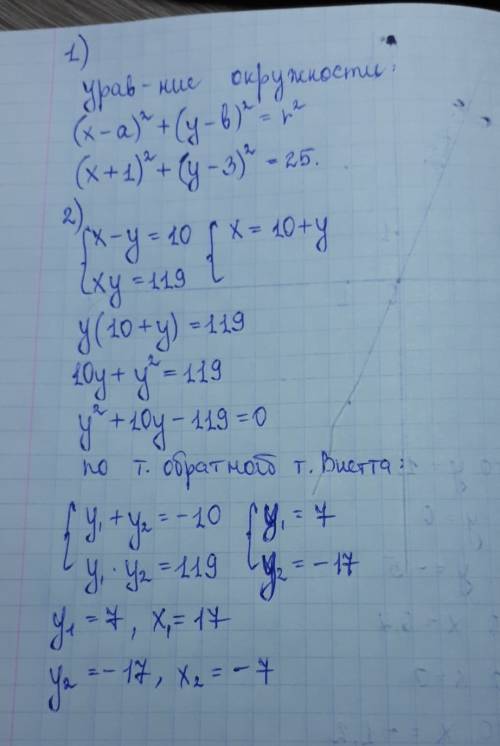 1)
урав-ние окружности:
(x-a)² + (y-b)² = r²
(x+1)² + (y-3)² = 25.
2) { x-y=10 { x = 10+y
xy = 119
y(10+y) = 119
10y + y² = 119
y² + 10y - 119 = 0
по т. обратной т. Виетта:
{ y₁ + y₂ = -10 { y₁ = 7
y₁ · y₂ = 119 y₂ = -17
y₁ = 7, x₁ = 17
y₂ = -17, x₂ = -7